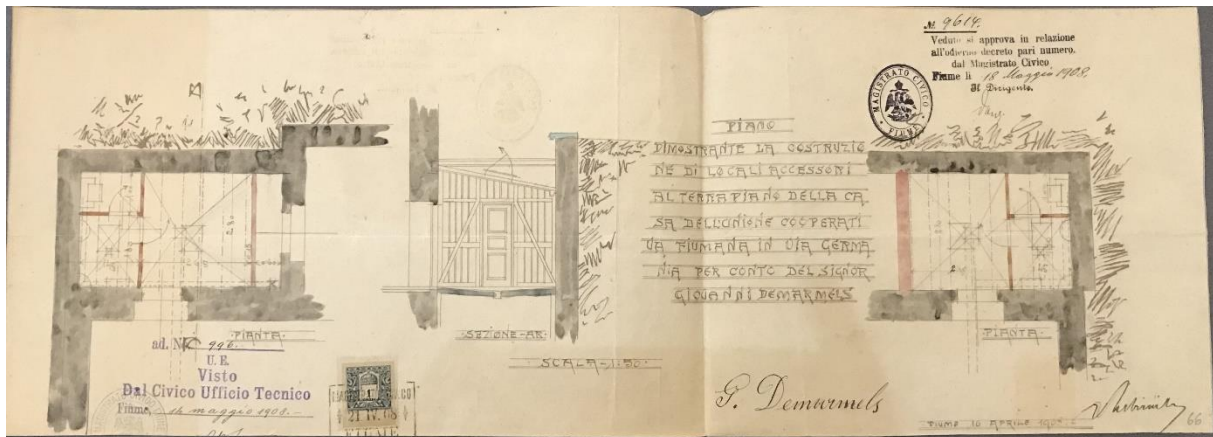 № 9614.
Veduto si approva in relazione
all'odierno decreto pari numero.
dal Magistrato Civico
Fiume li 18 Maggio 1908.
Il Dirigente.
MAGISTRATO CIVICO
FIUME
PIANO
DIMOSTRANTE LA COSTRUZIO
NE DI LOCALI ACCESSORI
AL TERRAPIANO DELLA CA
SA DELL'UNIONE COOPERATI
VA FIUMANA IN VIA GERMA
NIA PER CONTO DEL SIGNOR
GIOVANNI DEMARMELS
PIANTA
SEZIONE-AB
SCALA-1:50
PIANTA
ad. № 996
U. E.
Visto
Dal Civico Ufficio Tecnico
Fiume, 14 maggio 1908.-
21 IV. 08
FIUME
G. Demarmels
FIUME 16 APRILE
66